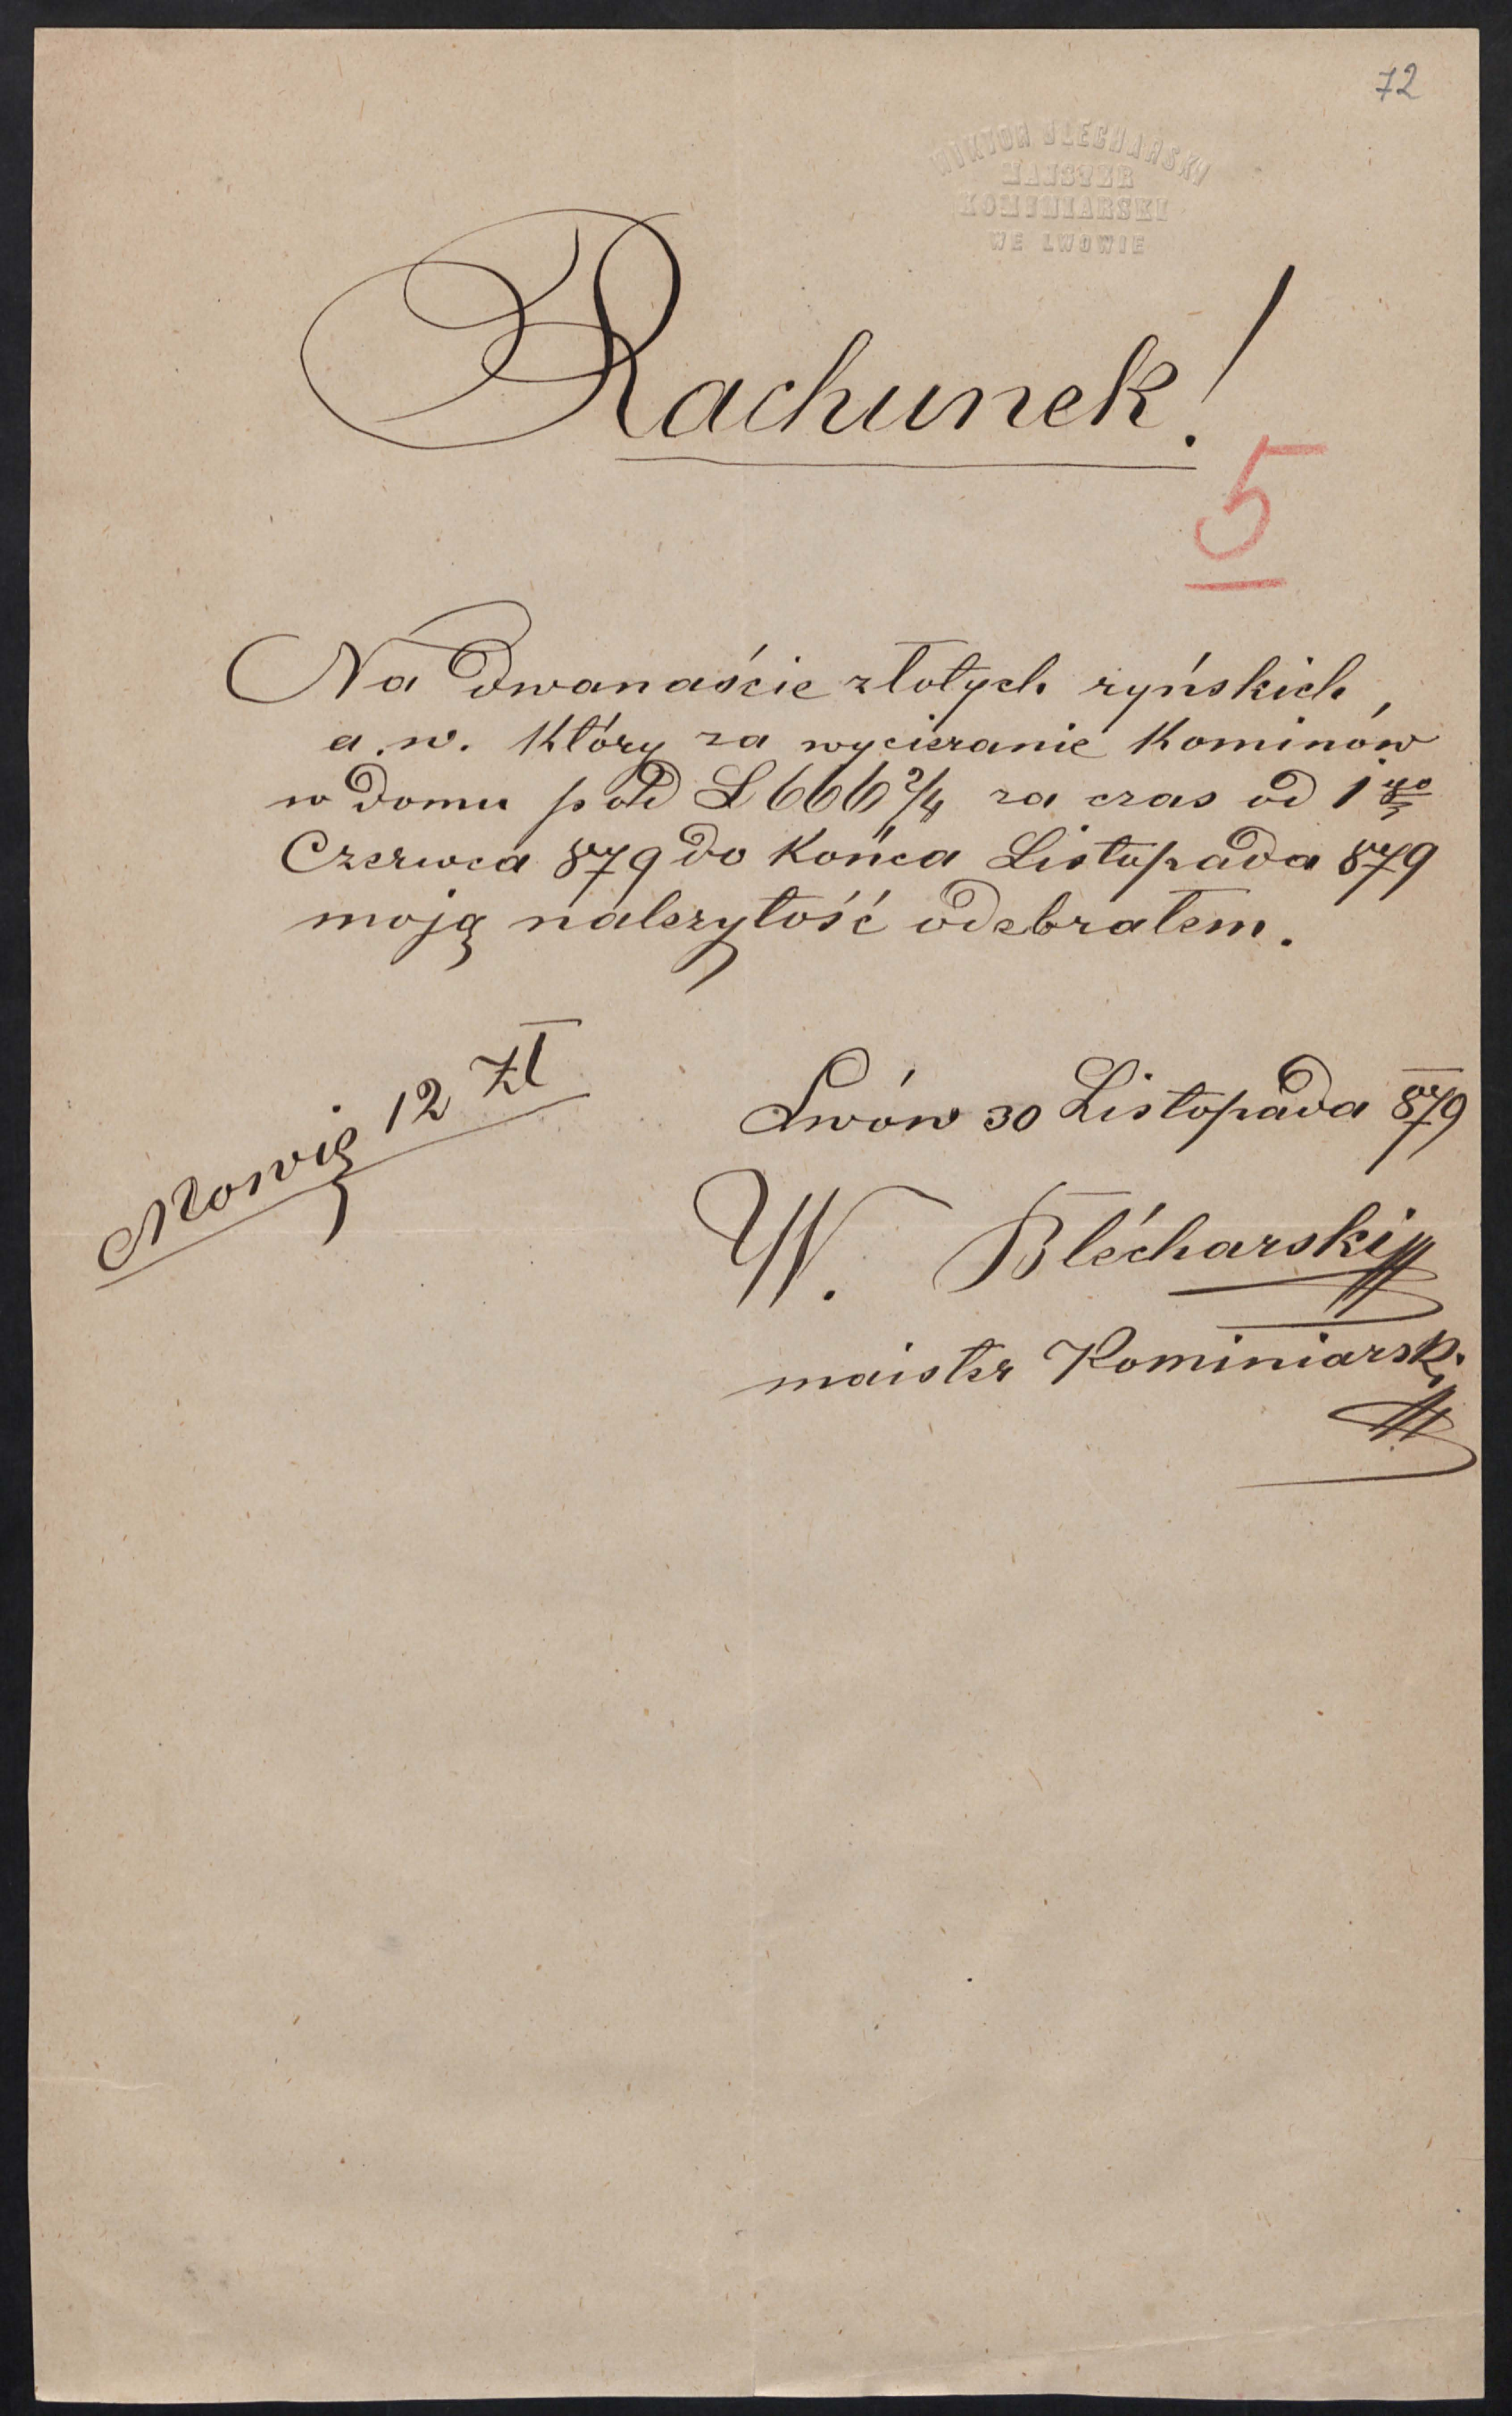 72
WIKTOR BLECHARSKI
MAJSTER
KOMINIARSKI
WE LWOWIE
Rachunek!
5
Na dwanaście złotych ryńskich,
a. w. który za wycieranie Kominów
w domu pod L 666 2/4 za czas od 1go
Czerwca 879 do Końca Listopada 879
moją nalezytość odebrałem.
Mowię 12 Zł
Lwów 30 Listopada 879
W. Blécharski
maister Kominiarski